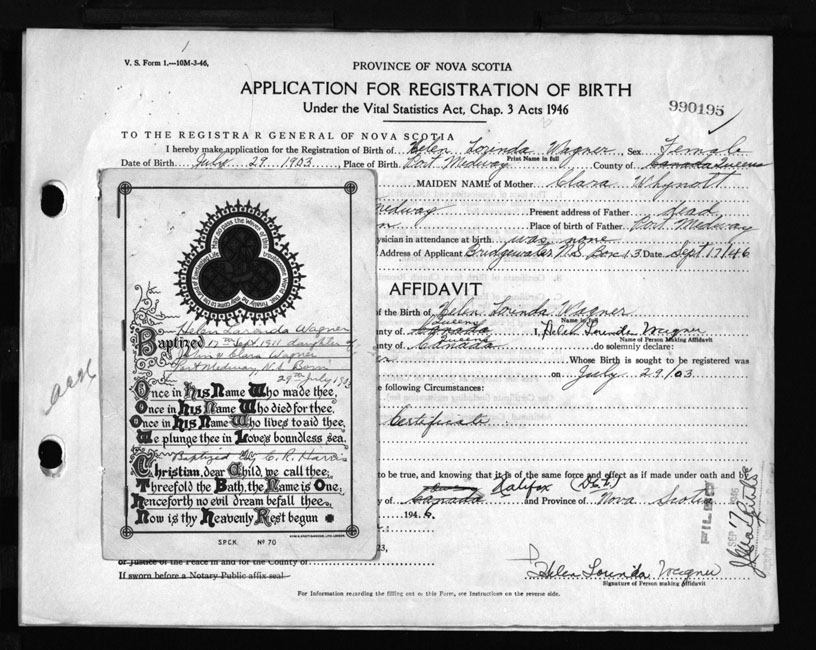 V. S. Form 1.—10M-3-46.
PROVINCE OF NOVA SCOTIA
APPLICATION FOR REGISTRATION OF BIRTH
Under the Vital Statistics Act, Chap. 3 Acts 1946
990195
TO THE REGISTRAR GENERAL OF NOVA SCOTIA
I hereby make application for the Registration of Birth of Helen Lorinda Wagner, Sex Female
Print Name in full
Date of Birth July 29 1903, Place of Birth Port Medway County of Canada Queens
MAIDEN NAME of Mother Clara Whynott
Medway Present address of Father dead
Place of birth of Father Port Medway
ysician in attendance at birth was none
Address of Applicant Bridgewater N.S. Box 13 Date Sept 17/46
AFFIDAVIT
of the Birth of Helen Lorinda Wagner
Name in full
Queens
nty of Canada I, Helen Lorinda Weigner
Name of Person Making Affidavit
Queens
nty of Canada do solemnly declare:
Whose Birth is sought to be registered was
on July 29/03
e following Circumstances:
Certificate
to be true, and knowing that it is of the same force and effect as if made under oath and by
Halifax
y of Canada and Province of Nova Scotia
194 6.
23,
or Justice of the Peace in and for the County of
If sworn before a Notary Public affix seal
Helen Lorinda Weigner
Signature of Person making Affidavit
For Information regarding the filling out of this Form, see Instructions on the reverse side.
FILED
SEP 17 1946
Helen Laranda Wagner
Baptized 17th Sept 1911 daughter of
John & Clara Wagner
Port Medway, N.S. Born
29th July
Once in His Name Who made thee,
Once in His Name Who died for thee,
Once in His Name Who lives to aid thee,
We plunge thee in Love's boundless sea.
Baptized by C. R. Harris
Christian, dear Child, we call thee;
Threefold the Bath, the Name is One;
Henceforth no evil dream befall thee
Now is thy Heavenly Rest begun
S.P.C.K. No 70